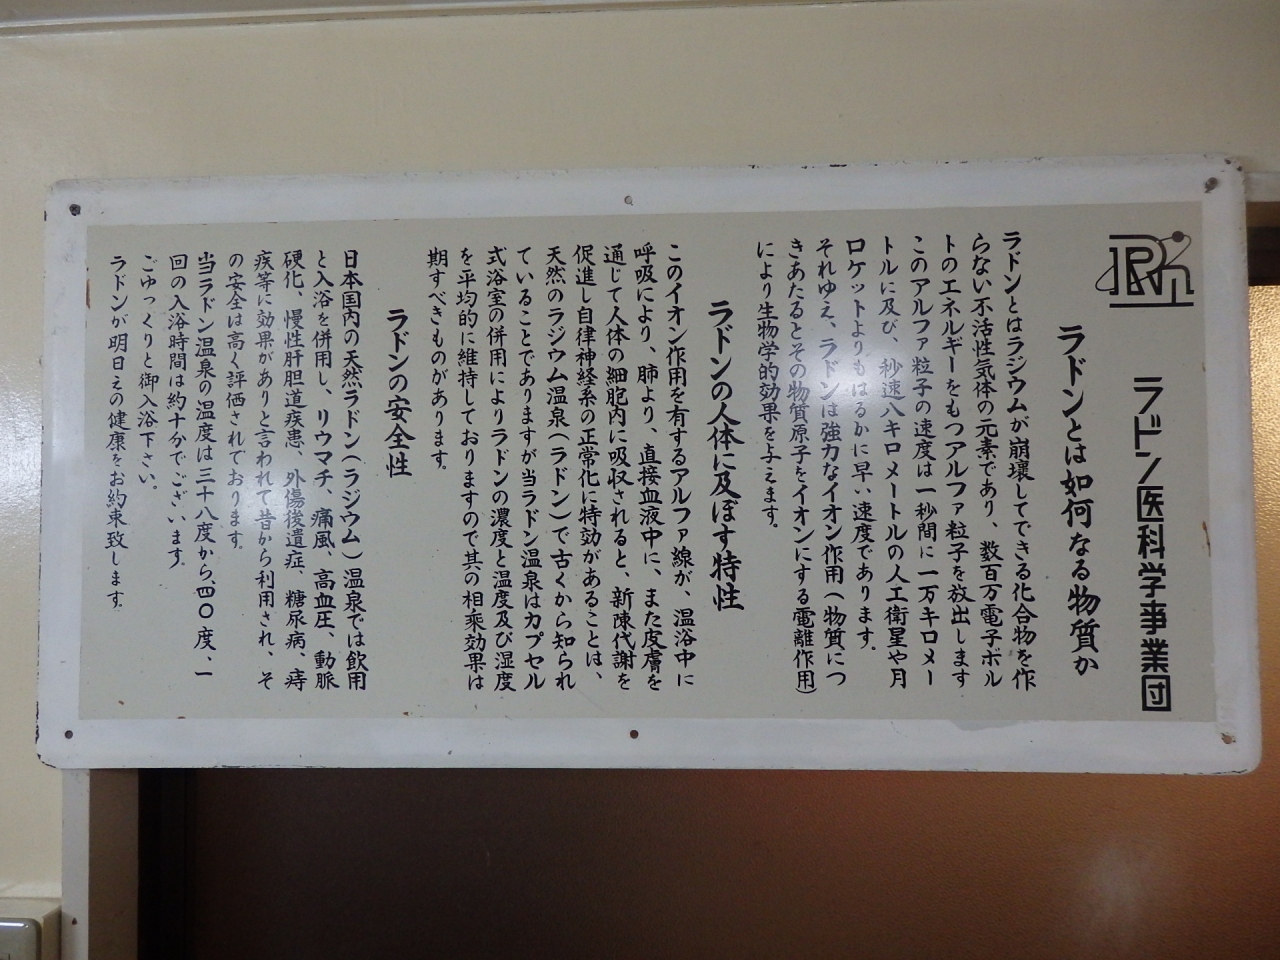 Rn
ラドン医科学事業団
ラドンとは如何なる物質か
ラドンとはラジウムが崩壊してできる化合物を作
らない不活性気体の元素であり、数百万電子ボル
トのエネルギーをもつアルファ粒子を放出します
このアルファ粒子の速度は一秒間に一万キロメー
トルに及び、秒速八キロメートルの人工衛星や月
ロケットよりもはるかに早い速度であります。
それゆえ、ラドンは強力なイオン作用(物質につ
きあたるとその物質原子をイオンにする電離作用)
により生物学的効果を与えます。
ラドンの人体に及ぼす特性
このイオン作用を有するアルファ線が、温浴中に
呼吸により、肺より、直接血液中に、また皮膚を
通じて人体の細胞内に吸収されると、新陳代謝を
促進し自律神経系の正常化に特効があることは、
天然のラジウム温泉(ラドン)で古くから知られ
ていることでありますが当ラドン温泉はカプセル
式浴室の併用によりラドンの濃度と温度及び湿度
を平均的に維持しておりますので其の相乗効果は
期すべきものがあります。
ラドンの安全性
日本国内の天然ラドン(ラジウム)温泉では飲用
と入浴を併用し、リウマチ、痛風、高血圧、動脈
硬化、慢性肝胆道疾患、外傷後遺症、糖尿病、痔
疾等に効果がありと言われて昔から利用され、そ
の安全は高く評価されております。
当ラドン温泉の温度は三十八度から、四〇度、一
回の入浴時間は約十分でございます。
ごゆっくりと御入浴下さい。
ラドンが明日えの健康をお約束致します。